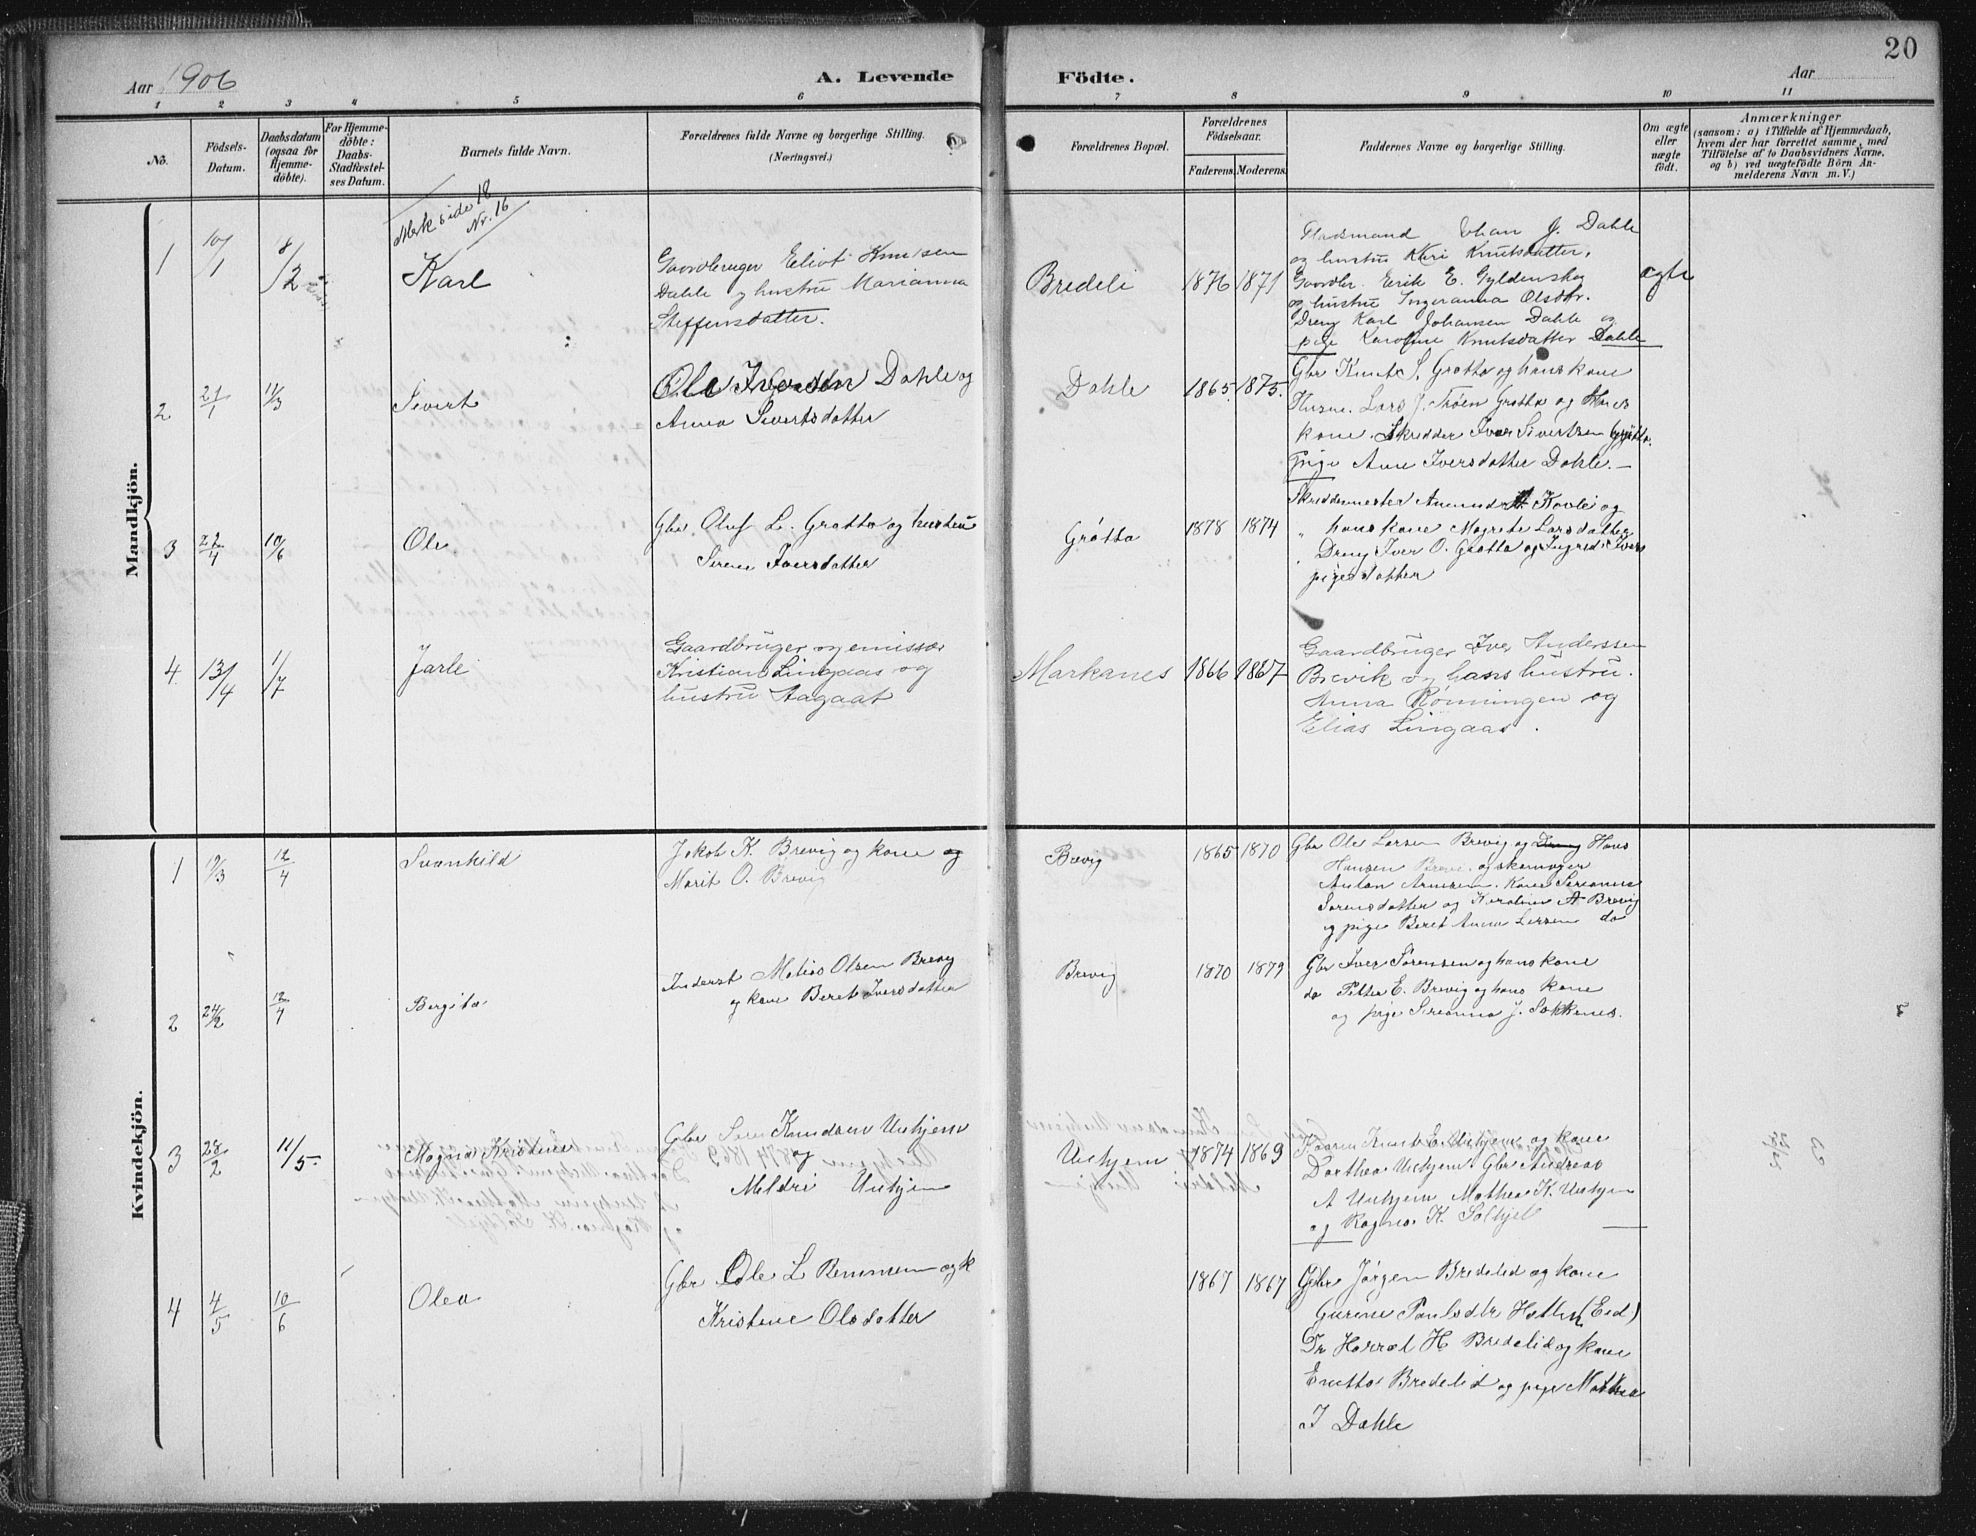 20
Aar 1906
A. Levende Födte.
Aar
1 2 3 4 5 6 7 8 9 10 11
No.
Födsels-Datum.
Daabsdatum (ogsaa for Hjemme-döbte).
For Hjemme-döbte: Daabs-Stadfæstel-ses Datum.
Barnets fulde Navn.
Forældrenes fulde Navne og borgerlige Stilling. (Næringsvei.)
Forældrenes Bopæl.
Forældrenes Födselsaar.
Faderens. Moderens.
Faddernes Navne og borgerlige Stilling.
Om ægte eller uægte födt.
Anmærkninger
(saasom: a) i Tilfælde af Hjemmedaab,
hvem der har forrettet samme, med
Tilföielse af to Daabsvidners Navne,
og b) ved uægtefödte Börn An-
melderens Navn m. V.)
Mandkjön.
Merk side 18
Nr. 16
1 10/1 8/2 Karl
Gaardbruger Eliot Knutsen
Dahle og hustru Marianna
Steffensdatter.
Bredeli 1876 1871
Johan J. Dahle
og hustru Kari Knutsdatter.
Gaardbr. Erik E. Gyldenskog
og hustru Ingeranna Olsdtr.
Dreng Karl Johansen Dahle og
pige Karoline Knutsdatter Dahle
ægte
2 21/1 11/3 Sivert
Ole Iversen Dahle og
Anna Sivertsdatter
Dahle 1865. 1875.
Gbr Knut S. Grøtta og hans kone
Husm. Lars J. Trøen Grøtta og Hans
kone. Skredder Iver Sivertsen Grøtta.
Pige Ane Iversdatter Dahle.
3 22/4 10/6 Ole
Gbr Oluf L. Grøtta og hustru
Serene Iversdatter
Grøtta 1878 1874
Skreddermester Amund A. Kavli og
" hans kone Magrete Larsdatter
Dreng Iver O. Grøtta og Ingrid Ivers
pige datter
4. 13/4 1/7 Jarle
Gaardbruger og emissær
Kristian Lingaas og
hustru Aagaat
Markanes 1866 1867
Gaardbruger Iver Anderssen
Brevik og hans hustru.
Anna Rønningen og
Elias Lingaas.
Kvindekjön.
1 19/3 12/4 Svanhild
Jakob K. Brevig og kone og
Marit O. Brevig
Brevig 1865 1870
Gbr Ole Larsen Brevig og Dreng Hans
Hansen Brevi. og skomager
Anton Arnesen. Kone Serianna
Sørensdatter og Karoline A Brevig
og pige Beret Anna Larsen do
2 24/2 12/4 Bergite
Inderst Matias Olsen Brevig
og kone Beret Iversdatter
Brevig 1870 1879
Gbr Iver Sørensen og hans kone
do Petter E. Brevig og hans kone
og pige Serianna J. Sakkenes.
3 28/2 11/5- Magna Kristine
Gbr Sern Knudsen Uuhjem
og
Meldri Uuhjem
Uuhjem 1874 1869
Kaarm Knut E. Uuhjem og kone
Dorthea Uuhjem Gbr Andreas
A Uuhjem Mathea K. Uuhjem
og Ragna K. Solhjel
4 4/5 10/6 Olea
Gbr Ole L Remmem og k
Kristine Olsdatter
1867 1867
Gbr Jørgen Bredelid og kone
Gurine Paulsdtr Hatlen (Eid)
Harral H Bredelid og kone
Enitta Bredelid og pige Mathea
I Dahle